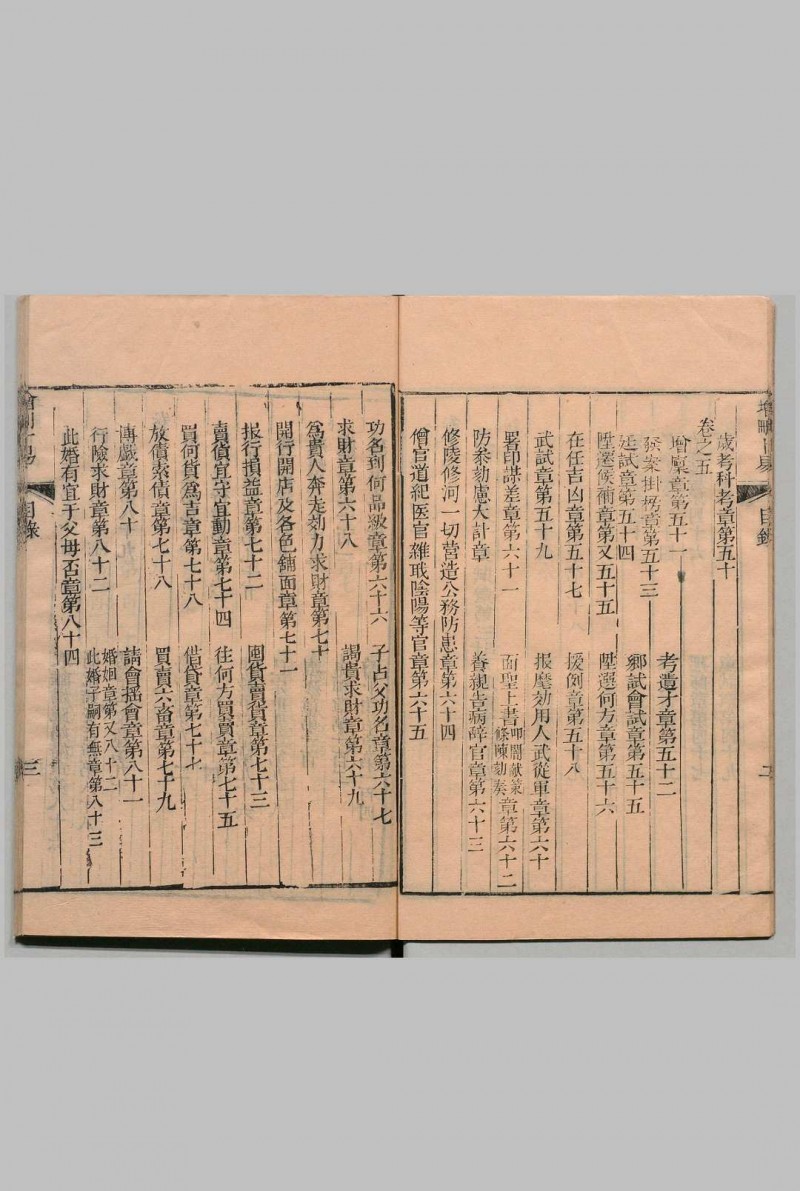 增刪卜易 目錄 二
歲考科考章第五十
卷之五
增廩章第五十一 考遺才章第五十二
發案掛榜章第五十三
廷試章第五十四 鄉試會試章第五十五
陞選候補章第又五十五 陞選何方章第五十六
在任吉凶章第五十七 援例章第五十八
武試章第五十九 报麾効用人武從軍章第六十
署印謀差章第六十一 面聖上書叩閽獻策條陳劾奏章第六十二
防參劾慮大計章 養親告病辭官章第六十三
修陵修河一切营造公務防患章第六十四
僧官道紀医官雜瓀陰陽等官章第六十五
功名到何品級章第六十六 子占父功名章第六十七
求財章第六十八 謁貴求財章第六十九
為貴人奔走効力求財章第七十
開行開店及各色鋪面章第七十一
报行損益章第七十二 囤貨賣貨章第七十三
賣貨宜守宜動章第七十四 往何方買賣章第七十五
買何貨爲吉章第七十八 借貸章第七十七
放債索債章第七十八 買賣六畜章第七十九
博戲章第八十 請會搖會章第八十一
行險求財章第八十二 婚姻章第又八十二
此婚子嗣有無章第八十三
此婚有宜于父母否章第八十四
增刪卜易 目錄 三